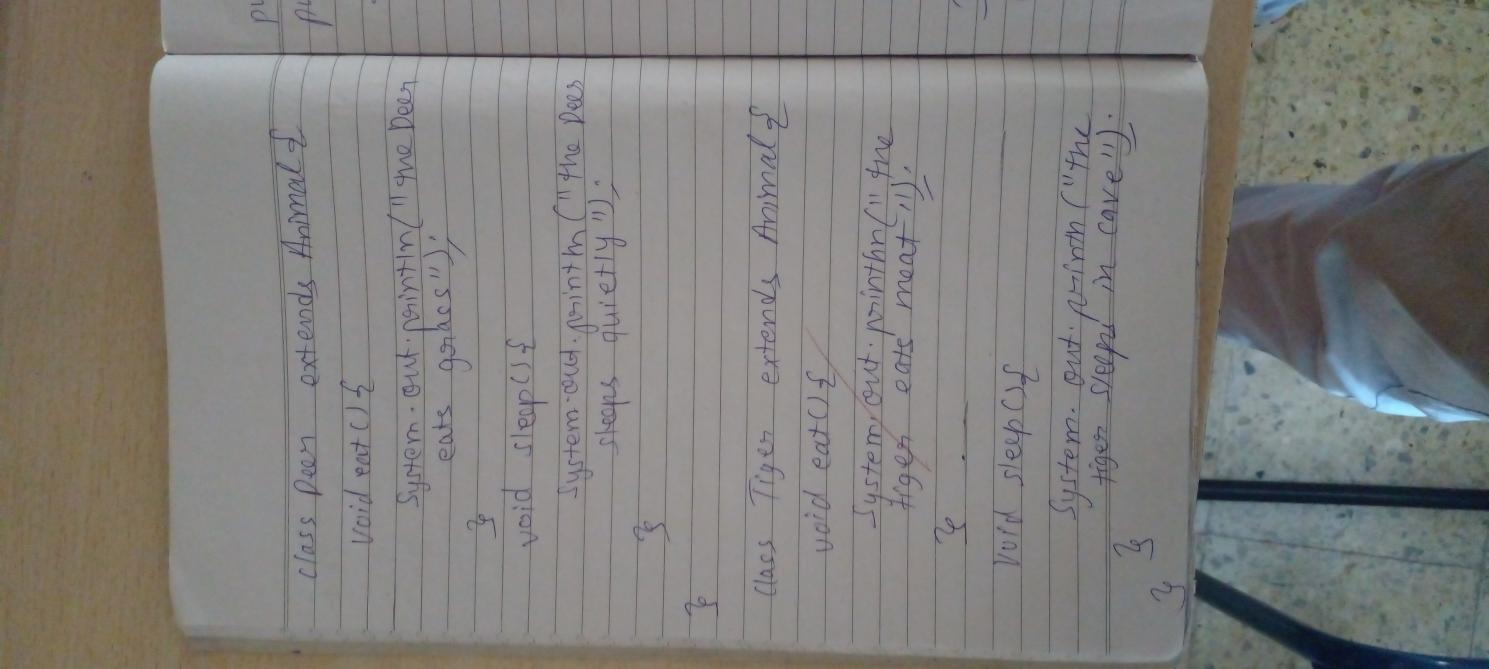 class Deer extends Animal {
void eat() {
System.out.println("the Deer
eats grass");
}
void sleep() {
System.out.println("the Deer
sleeps quietly");
}
}
class Tiger extends Animal {
void eat() {
System.out.println("the
tiger eats meat");
}
void sleep() {
System.out.println("the
tiger sleeps in cave");
}
}